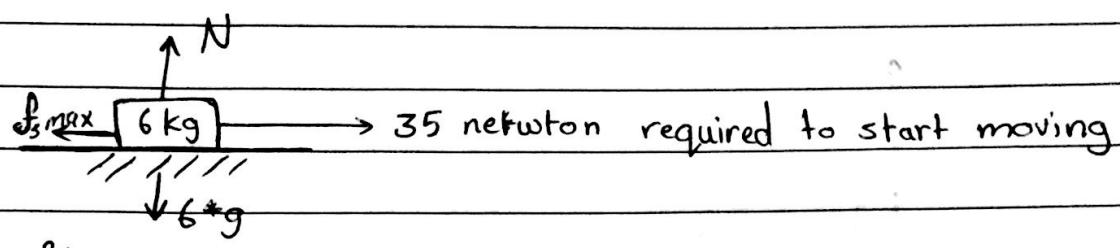 N
fs max 6 kg 35 netwton required to start moving
6*g